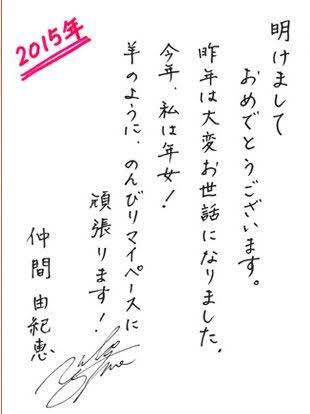 2015年
明けまして
おめでとうございます。
昨年は大変お世話になりました。
今年、私は年女!
羊のように、のんびりマイペースに
頑張ります!
仲間由紀恵